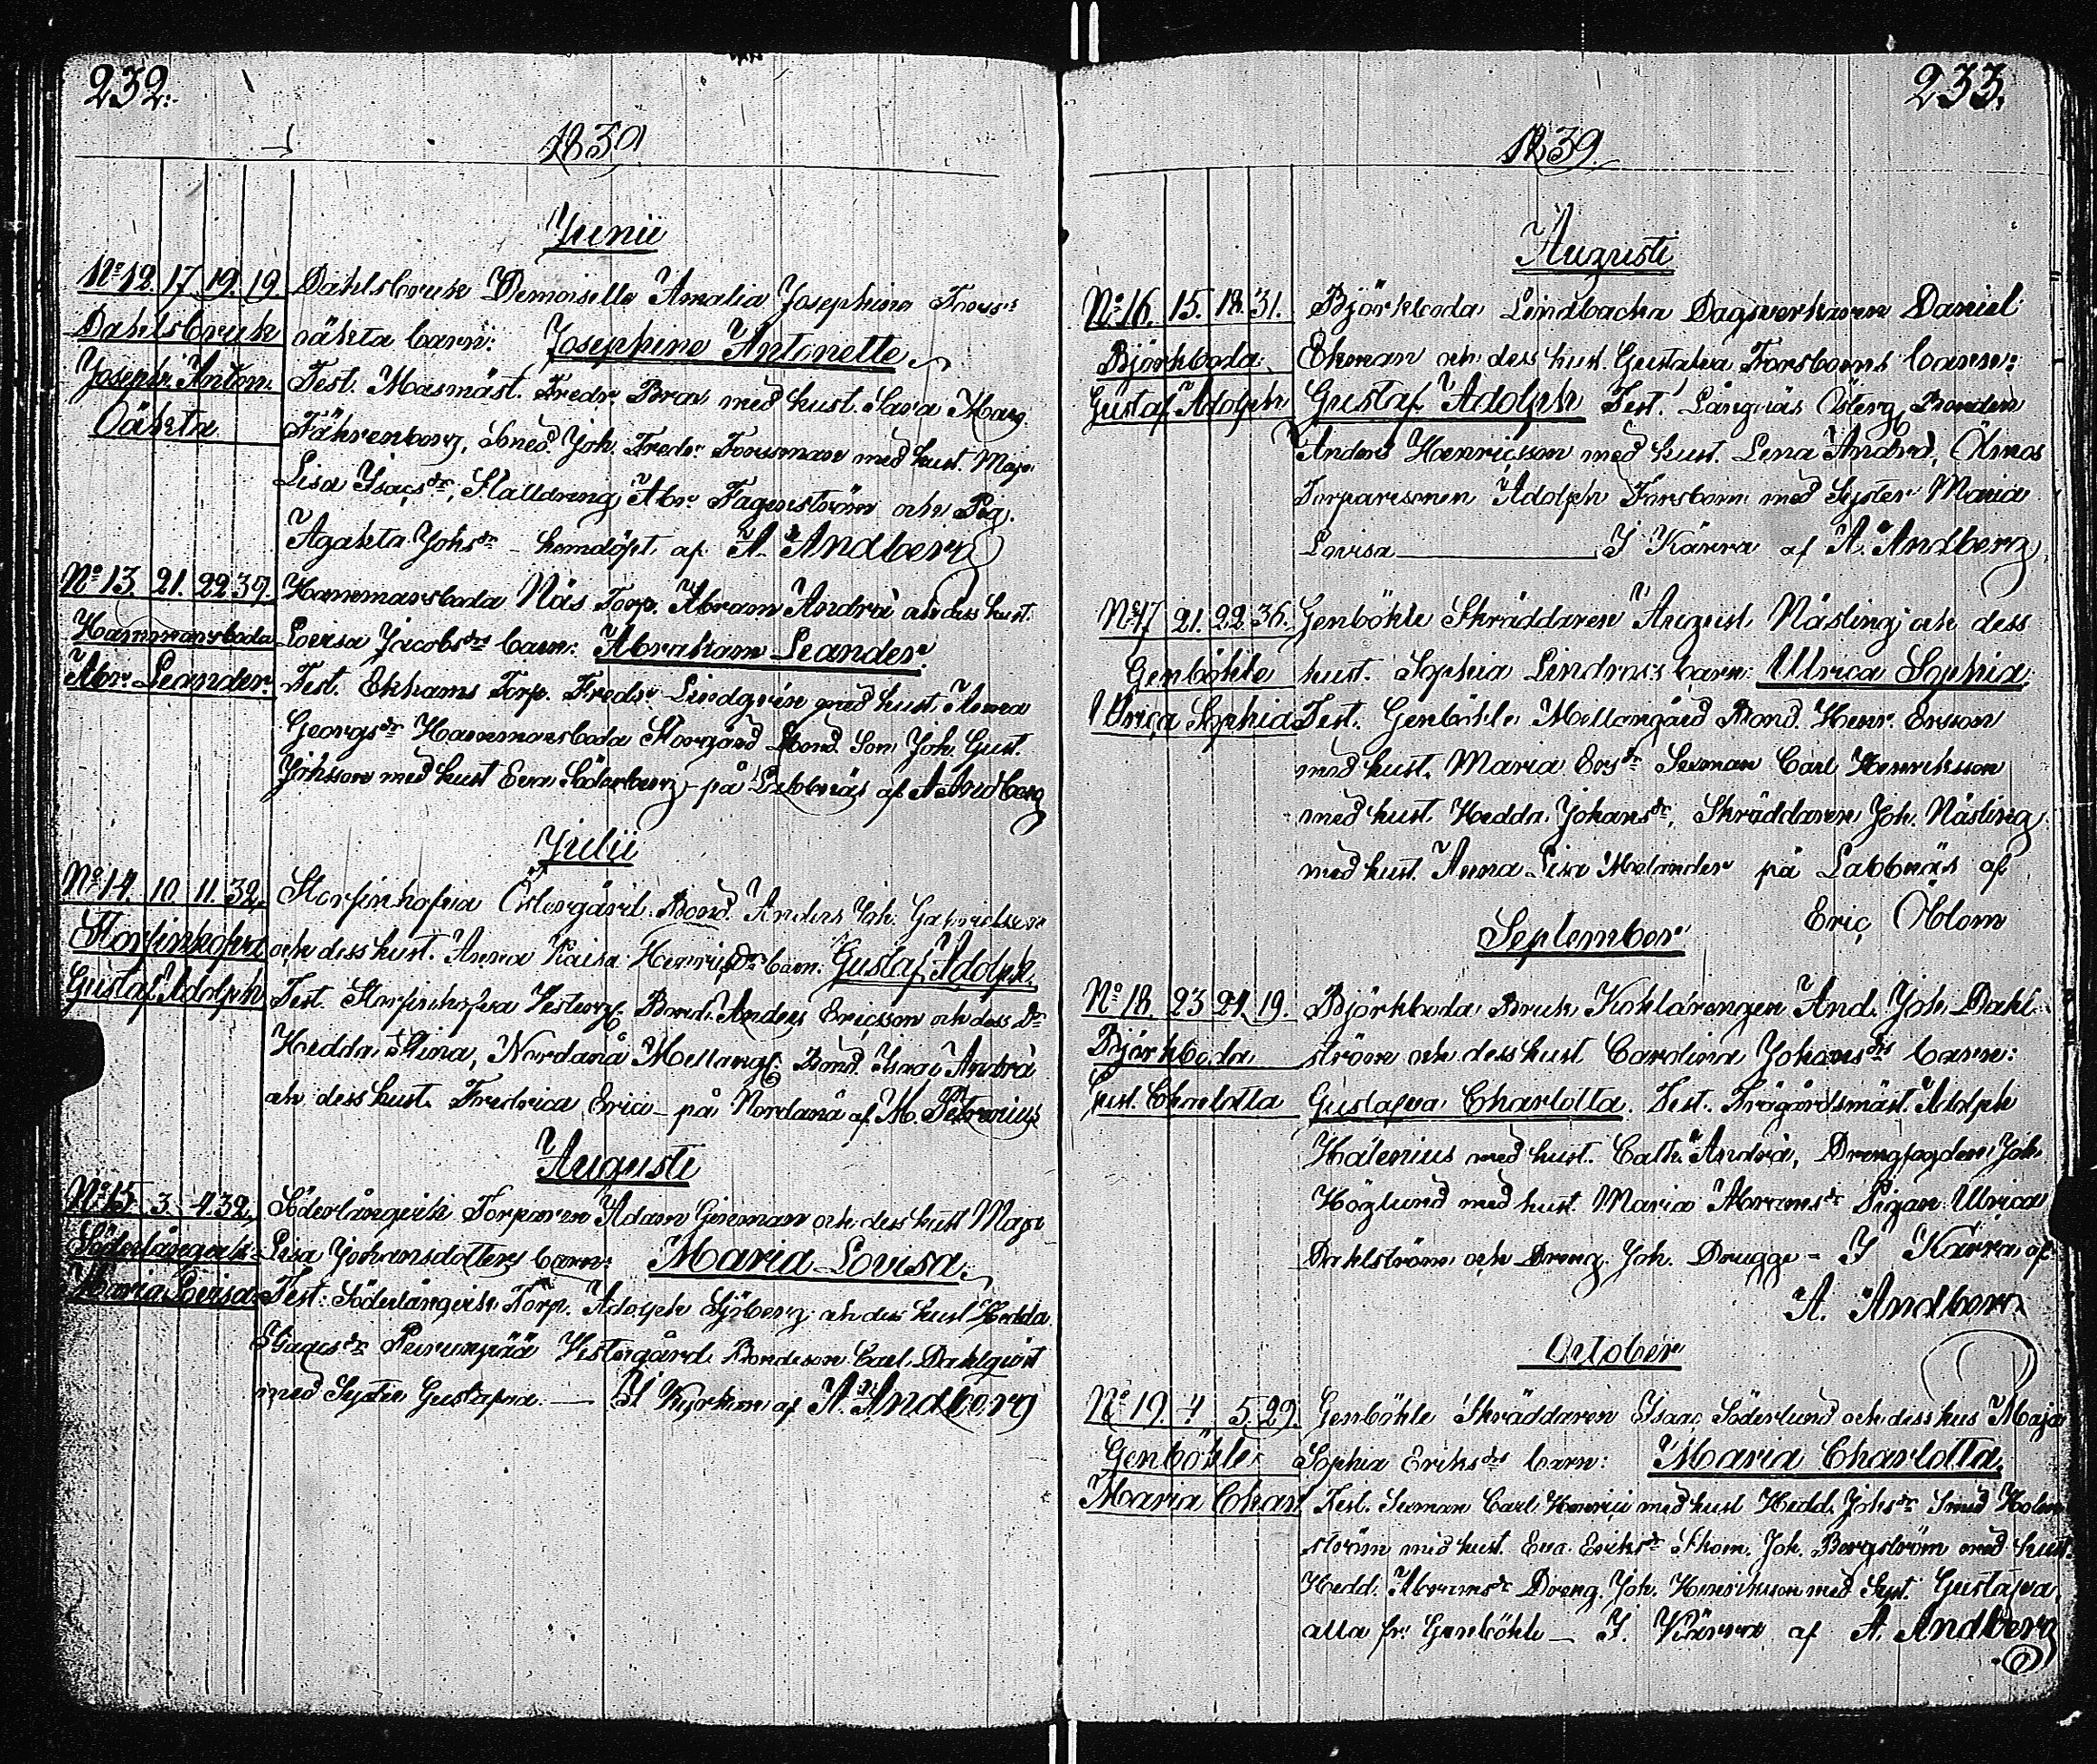 232.
1839
Junii
No 12. 17. 19. 19. Dahlsbruk Demoiselle Amalia Josephina
Dahlsbruk oäkta barn: Josephine Antonette
Joseph. Anton. Test. Masmäst. Fredr. Bra med hust. Sara Marg.
Oäkta Fährenberg, Smed. Joh. Fredr. Forssman med hust. Maja
Lisa Isacsdr, Stalldreng Abr. Fagerström och Pig.
Agahta Johsdr - hemdöpt af A. Andberg
No 13. 21. 22. 39. Hammarsboda Näs Torp. Abram Andrä och dess hust.
Hammarsboda Lovisa Jacobsdrs barn: Abraham Leander.
Abr. Leander. Test. Ekhams Torp. Fredr. Lindqvin med hust. Anna
Georgsdr Hammarsboda Storgård Bond. Son Joh. Gust.
Johsson med hust Eva Söderberg - på Labbnäs af A Andberg
Julii
No 14. 10. 11. 32. Storfinhofva Östergård. Bond. Anders Joh. Gabrielsson
Storfinhofva och dess hust. Anna Kaisa Henricsdrs barn: Gustaf Adolph.
Gustaf Adolph Test. Storfinhofva Vesterg. Bond. Anders Ericsson och dess Dr
Hedda Stina, Nordanå Mellang. Bond. Isac Andrä
och dess hust. Fredrica Erici - på Nordanå af M. Petrenius
Augusti
No 15. 3. 4. 32. Söderlångvik Torparen Adam Genman och dess hust Maja
Söderlångvik Lisa Johansdotters barn: Maria Lovisa.
Maria Lovisa Test: Söderlångvik Torp. Adolph Sjöberg och dess hust Hedda
Isacsdr Vestergård Bondeson Carl Dahlqvist
med Syster Gustafva. — I Kyrkan af A. Andberg
233.
1839.
Augusti
No 16. 15. 18. 31. Björkboda Lindbacka Dagsverkaren Daniel
Björkboda Ekman och dess hust. Gustafva Forsboms barn:
Gustaf Adolph Gustaf Adolph Test. Långnäs Österg Bonden
Anders Henricsson med hust. Lena Andrä, Ölmos
Torparesonen Adolph Forsbom med Syster Maria
Lovisa — I Kärra af A. Andberg
No 17 21. 22. 36. Genböhle Skräddaren August Näsling och dess
Genböhle hust. Sophia Lindroos barn: Ulrica Sophia
Ulrica Sophia Test. Genböhle Mellangård Bond. Henr. Ersson
med hust. Maria Ersdr Sexman Carl Henriksson
med hust. Hedda Johansdr, Skräddaren Joh. Näsling
med hust. Anna Lisa Melander på Labbnäs af
Eric Öblom
September
No 18. 23 24. 19. Björkboda Bruk, Kohldrengen And. Joh. Dahl-
Björkboda ström och dess hust Carolina Johansdrs barn:
Gust. Charlotta Gustafva Charlotta. Test. Trägårdsmäst. Adolph
Hälenius med hust. Cath. Andrä, Drengfogden Joh.
Höglund med hust. Maria Abramsdr Pigan Ulrica
Dahlström och Dreng. Joh. Drugge - I Kärra af
A. Andberg
October
No 19. 4 5. 29. Genböhle Skräddaren Isaac Söderlund och dess hus Maja
Genböhle Sophia Eriksdrs barn: Maria Charlotta.
Maria Char Test. Sexman Carl Henrici med hust Hedd. Johsdr Smed Holm-
ström med hust. Eva Eriksdr Skom. Joh. Bergström med hust.
Hedd. Abramsdr Dreng. Joh. Henriksson med Syst. Gustafva,
alla fr. Genböhle — I. Kärra af A. Andberg